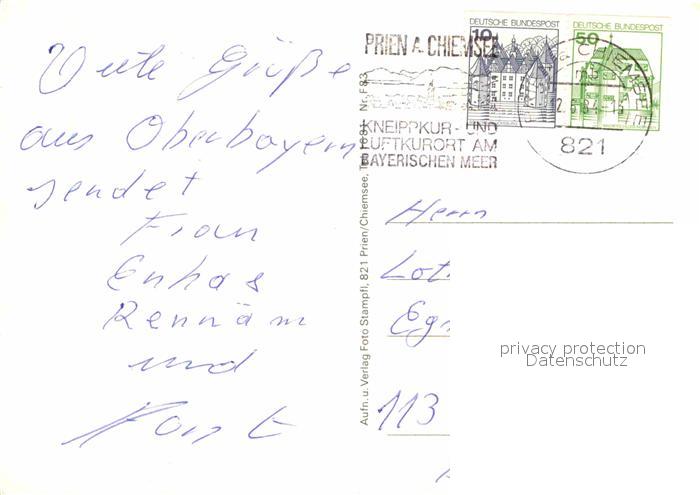 Viele Grüße
aus Oberbayern
sendet
Frau
und
Horst
Aufn. u. Verlag Foto Stampfl, 821 Prien/Chiemsee, Tel. Nr. F 83
PRIEN A. CHIEMSEE
KNEIPPKUR - UND
LUFTKURORT AM
BAYERISCHEN MEER
DEUTSCHE BUNDESPOST
10
DEUTSCHE BUNDESPOST
50
821
Herrn
Lot
113
privacy protection
Datenschutz